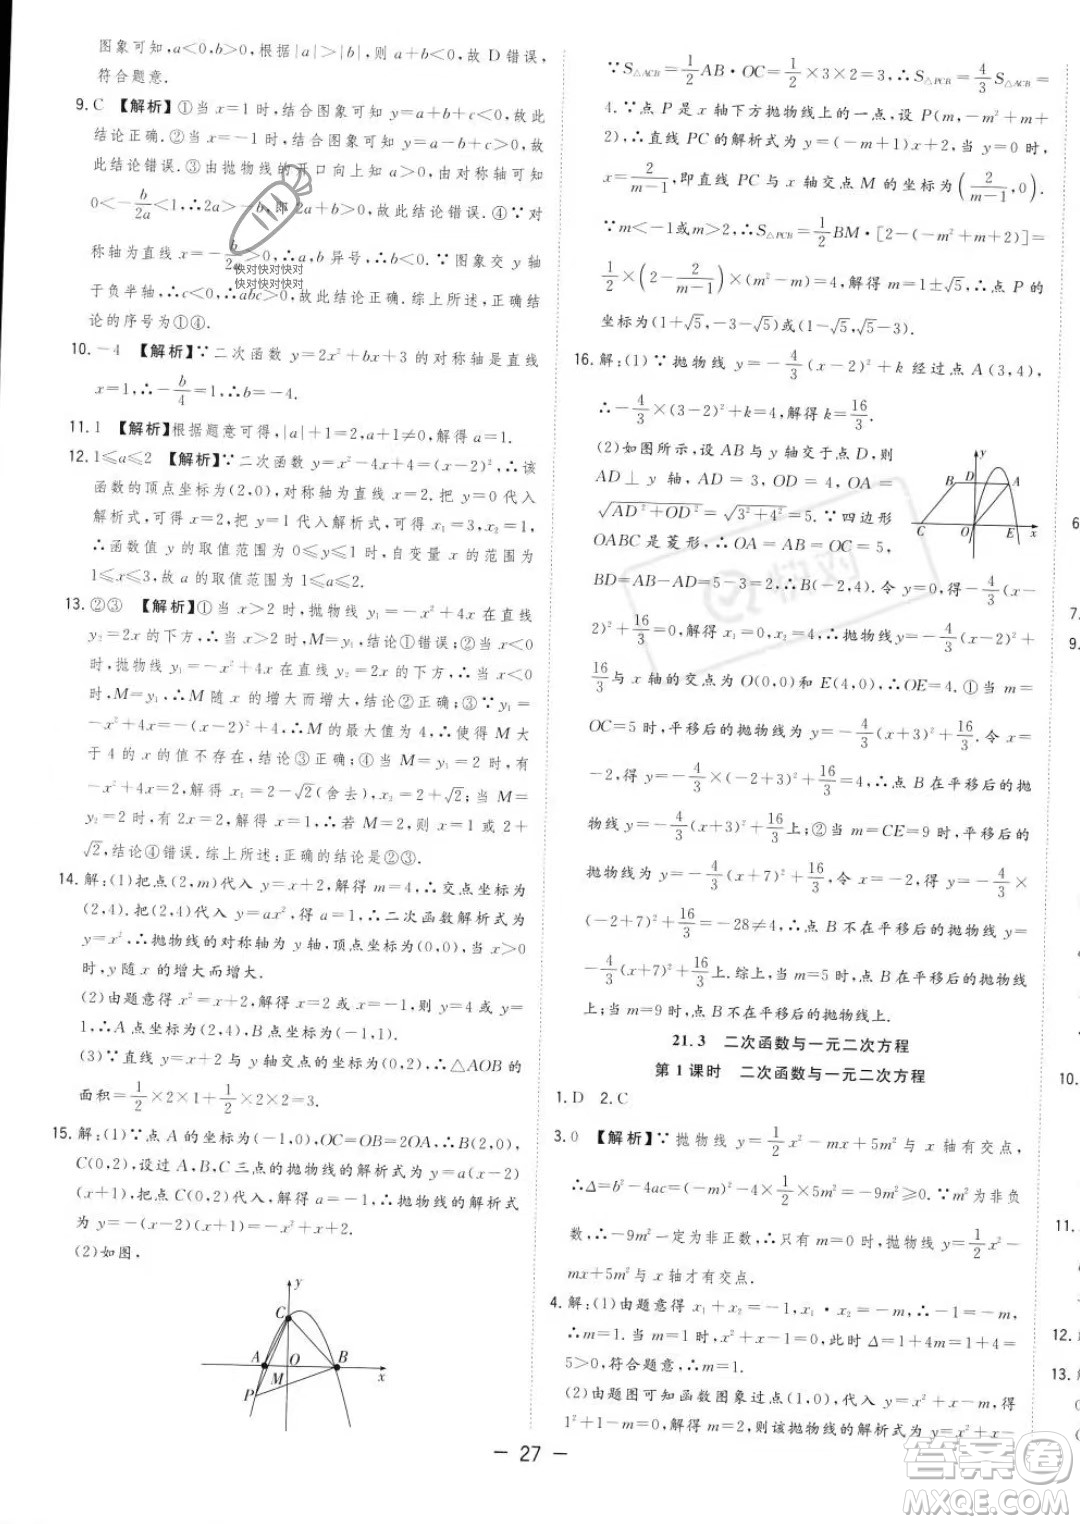 图象可知,a<0,b>0,根据|a|>|b|,则 a+b<0,故 D 错误,
符合题意.
9. C 【解析】①当 x=1 时,结合图象可知 y=a+b+c<0,故此
结论正确.②当 x=-1 时,结合图象可知 y=a-b+c>0,故
此结论错误.③由抛物线的开口向上知 a>0,由对称轴可知
0<-b/2a<1,∴2a>-b,即 2a+b>0,故此结论错误.④∵对
称轴为直线 x=-b/2a>0,∴a,b 异号,∴b<0.∵图象交 y 轴
于负半轴,∴c<0,∴abc>0,故此结论正确.综上所述,正确结
论的序号为①④.
10. -4 【解析】∵二次函数 y=2x²+bx+3 的对称轴是直线
x=1,∴-b/4=1,∴b=-4.
11. 1 【解析】根据题意可得,|a|+1=2,a+1≠0,解得 a=1.
12. 1≤a≤2 【解析】∵二次函数 y=x²-4x+4=(x-2)²,∴该
函数的顶点坐标为(2,0),对称轴为直线 x=2,把 y=0 代入
解析式,可得 x=2,把 y=1 代入解析式,可得 x₁=3,x₂=1,
∴函数值 y 的取值范围为 0≤y≤1 时,自变量 x 的范围为
1≤x≤3,∴1≤a≤2.
13. ②③ 【解析】①当 x>2 时,抛物线 y₁=-x²+4x 在直线
y₂=2x 的下方,∴当 x>2 时,M=y₁,结论①错误;②当 x<0
时,抛物线 y₁=-x²+4x 在直线 y₂=2x 的下方,∴当 x<0
时,M=y₁,∴M 随 x 的增大而增大,结论②正确;③∵y₁=
-x²+4x=-(x-2)²+4,∴M 的最大值为 4,∴使得 M 大
于 4 的 x 的值不存在,结论③正确;④当 M=y₁=2 时,有
-x²+4x=2,解得 x₁=2-√2(舍去),x₂=2+√2;当 M=
y₂=2 时,有 2x=2,解得 x=1,∴若 M=2,则 x=1 或 2+
√2,结论④错误.综上所述:正确的结论是②③.
14. 解:(1)把点(2,m)代入 y=x+2,解得 m=4,∴交点坐标为
(2,4).把(2,4)代入 y=ax²,解得 a=1,∴二次函数解析式为
y=x²,∴抛物线的对称轴为 y 轴,顶点坐标为(0,0),当 x>0
时,y 随 x 的增大而增大.
(2)由题意得 x²=x+2,解得 x=2 或 x=-1,则 y=4 或 y=
1,∴A 点坐标为(2,4),B 点坐标为(-1,1).
(3)∵直线 y=x+2 与 y 轴交点的坐标为(0,2),∴△AOB 的
面积=1/2×2×1+1/2×2×2=3.
15. 解:(1)∵点 A 的坐标为(-1,0),OC=OB=2OA=2,∴
C(0,2),设过 A、B、C 三点的抛物线的解析式为 y=a(x-2)
(x+1),把点 C(0,2)代入,解得 a=-1,∴抛物线的解析式
为 y=-(x-2)(x+1)=-x²+x+2.
(2)如图,
y
C
A
O
B
x
M
P
∵S△ACB=1/2AB·OC=1/2×3×2=3,∴S△PCB=4/3S△ACB=
4.∵点 P 是 x 轴下方抛物线上的一点,设 P(m,-m²+m+
2),∴直线 PC 的解析式为 y=(-m+1)x+2,当 y=0 时,
x=2/(m-1),即直线 PC 与 x 轴交点 M 的坐标为(2/(m-1),0).
∵m<-1,∴2-2/(m-1)>0,∴S△PCB=1/2BM·[2-(-m²+m+2)]=
1/2×(2-2/(m-1))×(m²-m)=4,解得 m=1±√5,∴点 P 的
坐标为(1+√5,-3-√5)或(1-√5,-3+√5).
16. 解:(1)∵抛物线 y=-4/3(x-2)²+k 经过点 A(3,4),
∴-4/3×(3-2)²+k=4,解得 k=16/3.
(2)如图所示,设 AB 与 y 轴交于点 D,则
AD⊥y 轴,AD=3,OD=4,∴OA=
√AD²+OD²=√3²+4²=5.∵四边形
OABC 是菱形,∴OA=AB=OC=5,
BD=AB-AD=5-3=2,∴B(-2,4).令 y=0,得-4/3(x-
2)²+16/3=0,解得 x₁=0,x₂=4,∴抛物线 y=-4/3(x-2)²+
16/3与 x 轴的交点为 O(0,0)和 E(4,0),∴OE=4.①当 m=
OC=5 时,平移后的抛物线为 y=-4/3(x+3)²+16/3.令 x=
-2,得 y=-4/3(-2+3)²+16/3=4,∴点 B 在平移后的抛
物线 y=-4/3(x+3)²+16/3上;②当 m=CE=9 时,平移后的
抛物线为 y=-4/3(x+7)²+16/3.令 x=-2,得 y=-4/3×
(-2+7)²+16/3=-28≠4,∴点 B 不在平移后的抛物线 y=
-4/3(x+7)²+16/3上.综上,当 m=5 时,点 B 在平移后的抛物线
上;当 m=9 时,点 B 不在平移后的抛物线上.
y
B
D
A
C
O
E
x
21.3 二次函数与一元二次方程
第 1 课时 二次函数与一元二次方程
1. D 2. C
3. 0 【解析】∵抛物线 y=1/2x²-mx+5m²与 x 轴有交点,
∴Δ=b²-4ac=(-m)²-4×1/2×5m²=-9m²≥0.∵m²为非负
数,∴-9m²一定为非正数,∴只有 m=0 时,抛物线 y=1/2x²-
mx+5m²与 x 轴才有交点.
4. 解:(1)由题意得 x₁+x₂=-1,x₁·x₂=-m,∴-1=-m,
∴m=1.当 m=1 时,x²+x-1=0,此时 Δ=1+4m=1+4=
5>0,符合题意,∴m=1.
(2)由题图可知函数图象过点(1,0),代入 y=x²+x-m,得
1²+1-m=0,解得 m=2,则该抛物线的解析式为 y=x²+x-
— 27 —
6.
7.
9.
10.
11.
12.
13.
快对快对快对
快对快对快对
快对
答案圈
MXQE.COM